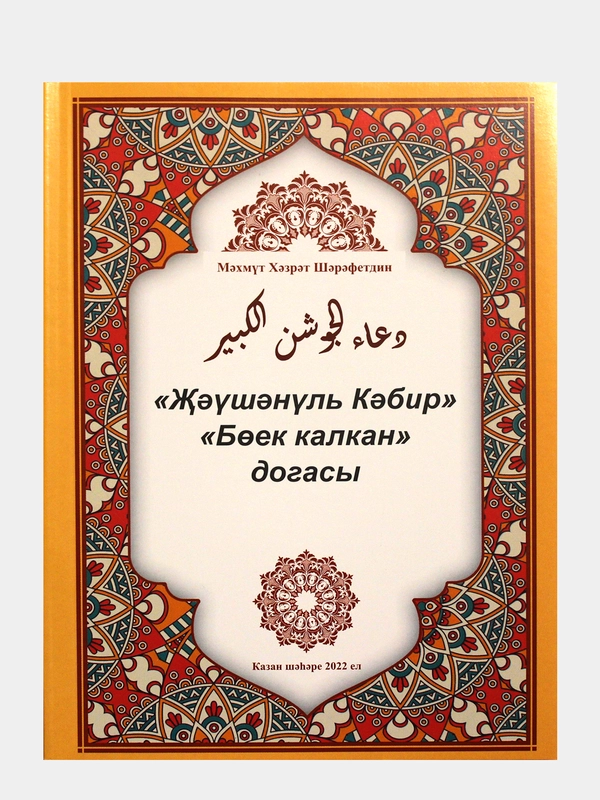 Мәхмүт Хәзрәт Шәрәфетдин
دعاء الجوشن الكبير
«Җәүшәнүль Кәбир»
«Бөек калкан»
догасы
Казан шәһәре 2022 ел